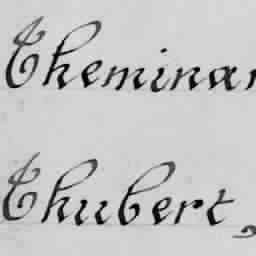 Theminar
Thubert